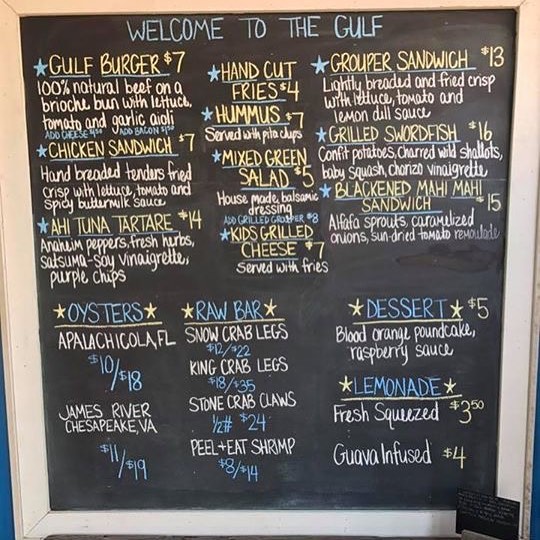 WELCOME TO THE GULF
★GULF BURGER $7
100% natural beef on a
brioche bun with lettuce,
tomato and garlic aioli
ADD CHEESE $.50 ADD BACON $1.50
★CHICKEN SANDWICH $7
Hand breaded tenders fried
crisp with lettuce, tomato and
spicy buttermilk sauce
★AHI TUNA TARTARE ★$14
Anaheim peppers, fresh herbs,
satsuma-soy vinaigrette,
purple chips
★HAND CUT
FRIES $4
★HUMMUS $7
Served with pita chips
★MIXED GREEN
SALAD $5
House made, balsamic
dressing
ADD GRILLED GROUPER $8
★KIDS GRILLED
CHEESE $7
Served with fries
★GROUPER SANDWICH $13
Lightly breaded and fried crisp
with lettuce, tomato and
lemon dill sauce
★GRILLED SWORDFISH $16
Confit potatoes, Charred wild shallots,
baby squash, chorizo vinaigrette
★BLACKENED MAHI MAHI
SANDWICH $15
Alfafa sprouts, caramelized
onions, sun-dried tomato remoulade
★OYSTERS★
APALACHICOLA, FL
$10/$18
JAMES RIVER
CHESAPEAKE, VA
$11/$19
★RAW BAR★
SNOW CRAB LEGS
$12/$22
KING CRAB LEGS
$18/$35
STONE CRAB CLAWS
1/2# $24
PEEL+EAT SHRIMP
$8/$14
★DESSERT★ $5
Blood orange poundcake,
raspberry sauce
★LEMONADE★
Fresh Squeezed $3.50
Guava Infused $4